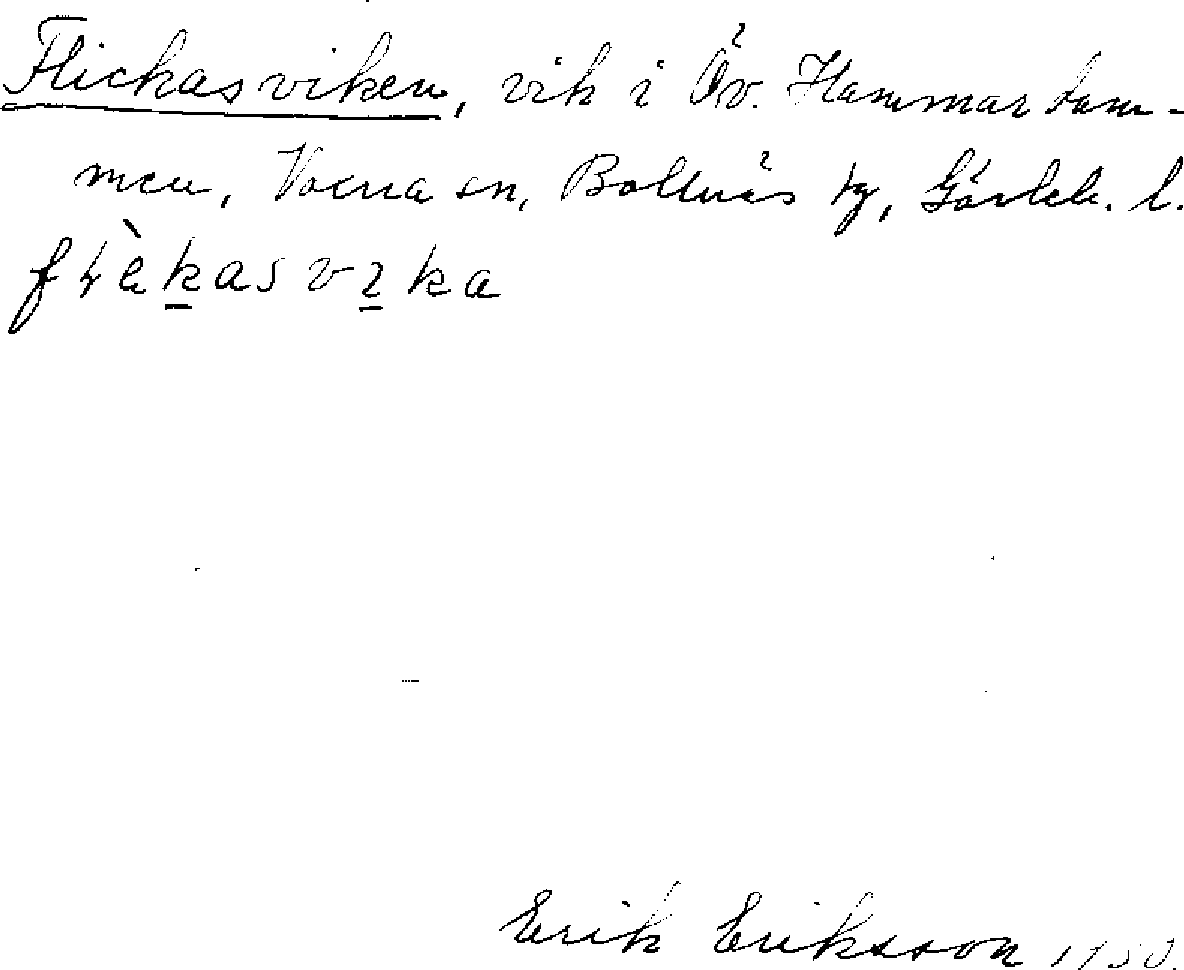 Flickasviken, vik i Öv. Hammardam-
men, Voxna sn, Bollnäs tg, Gävleb. l.
flèkasvika
Erik Eriksson 1950.